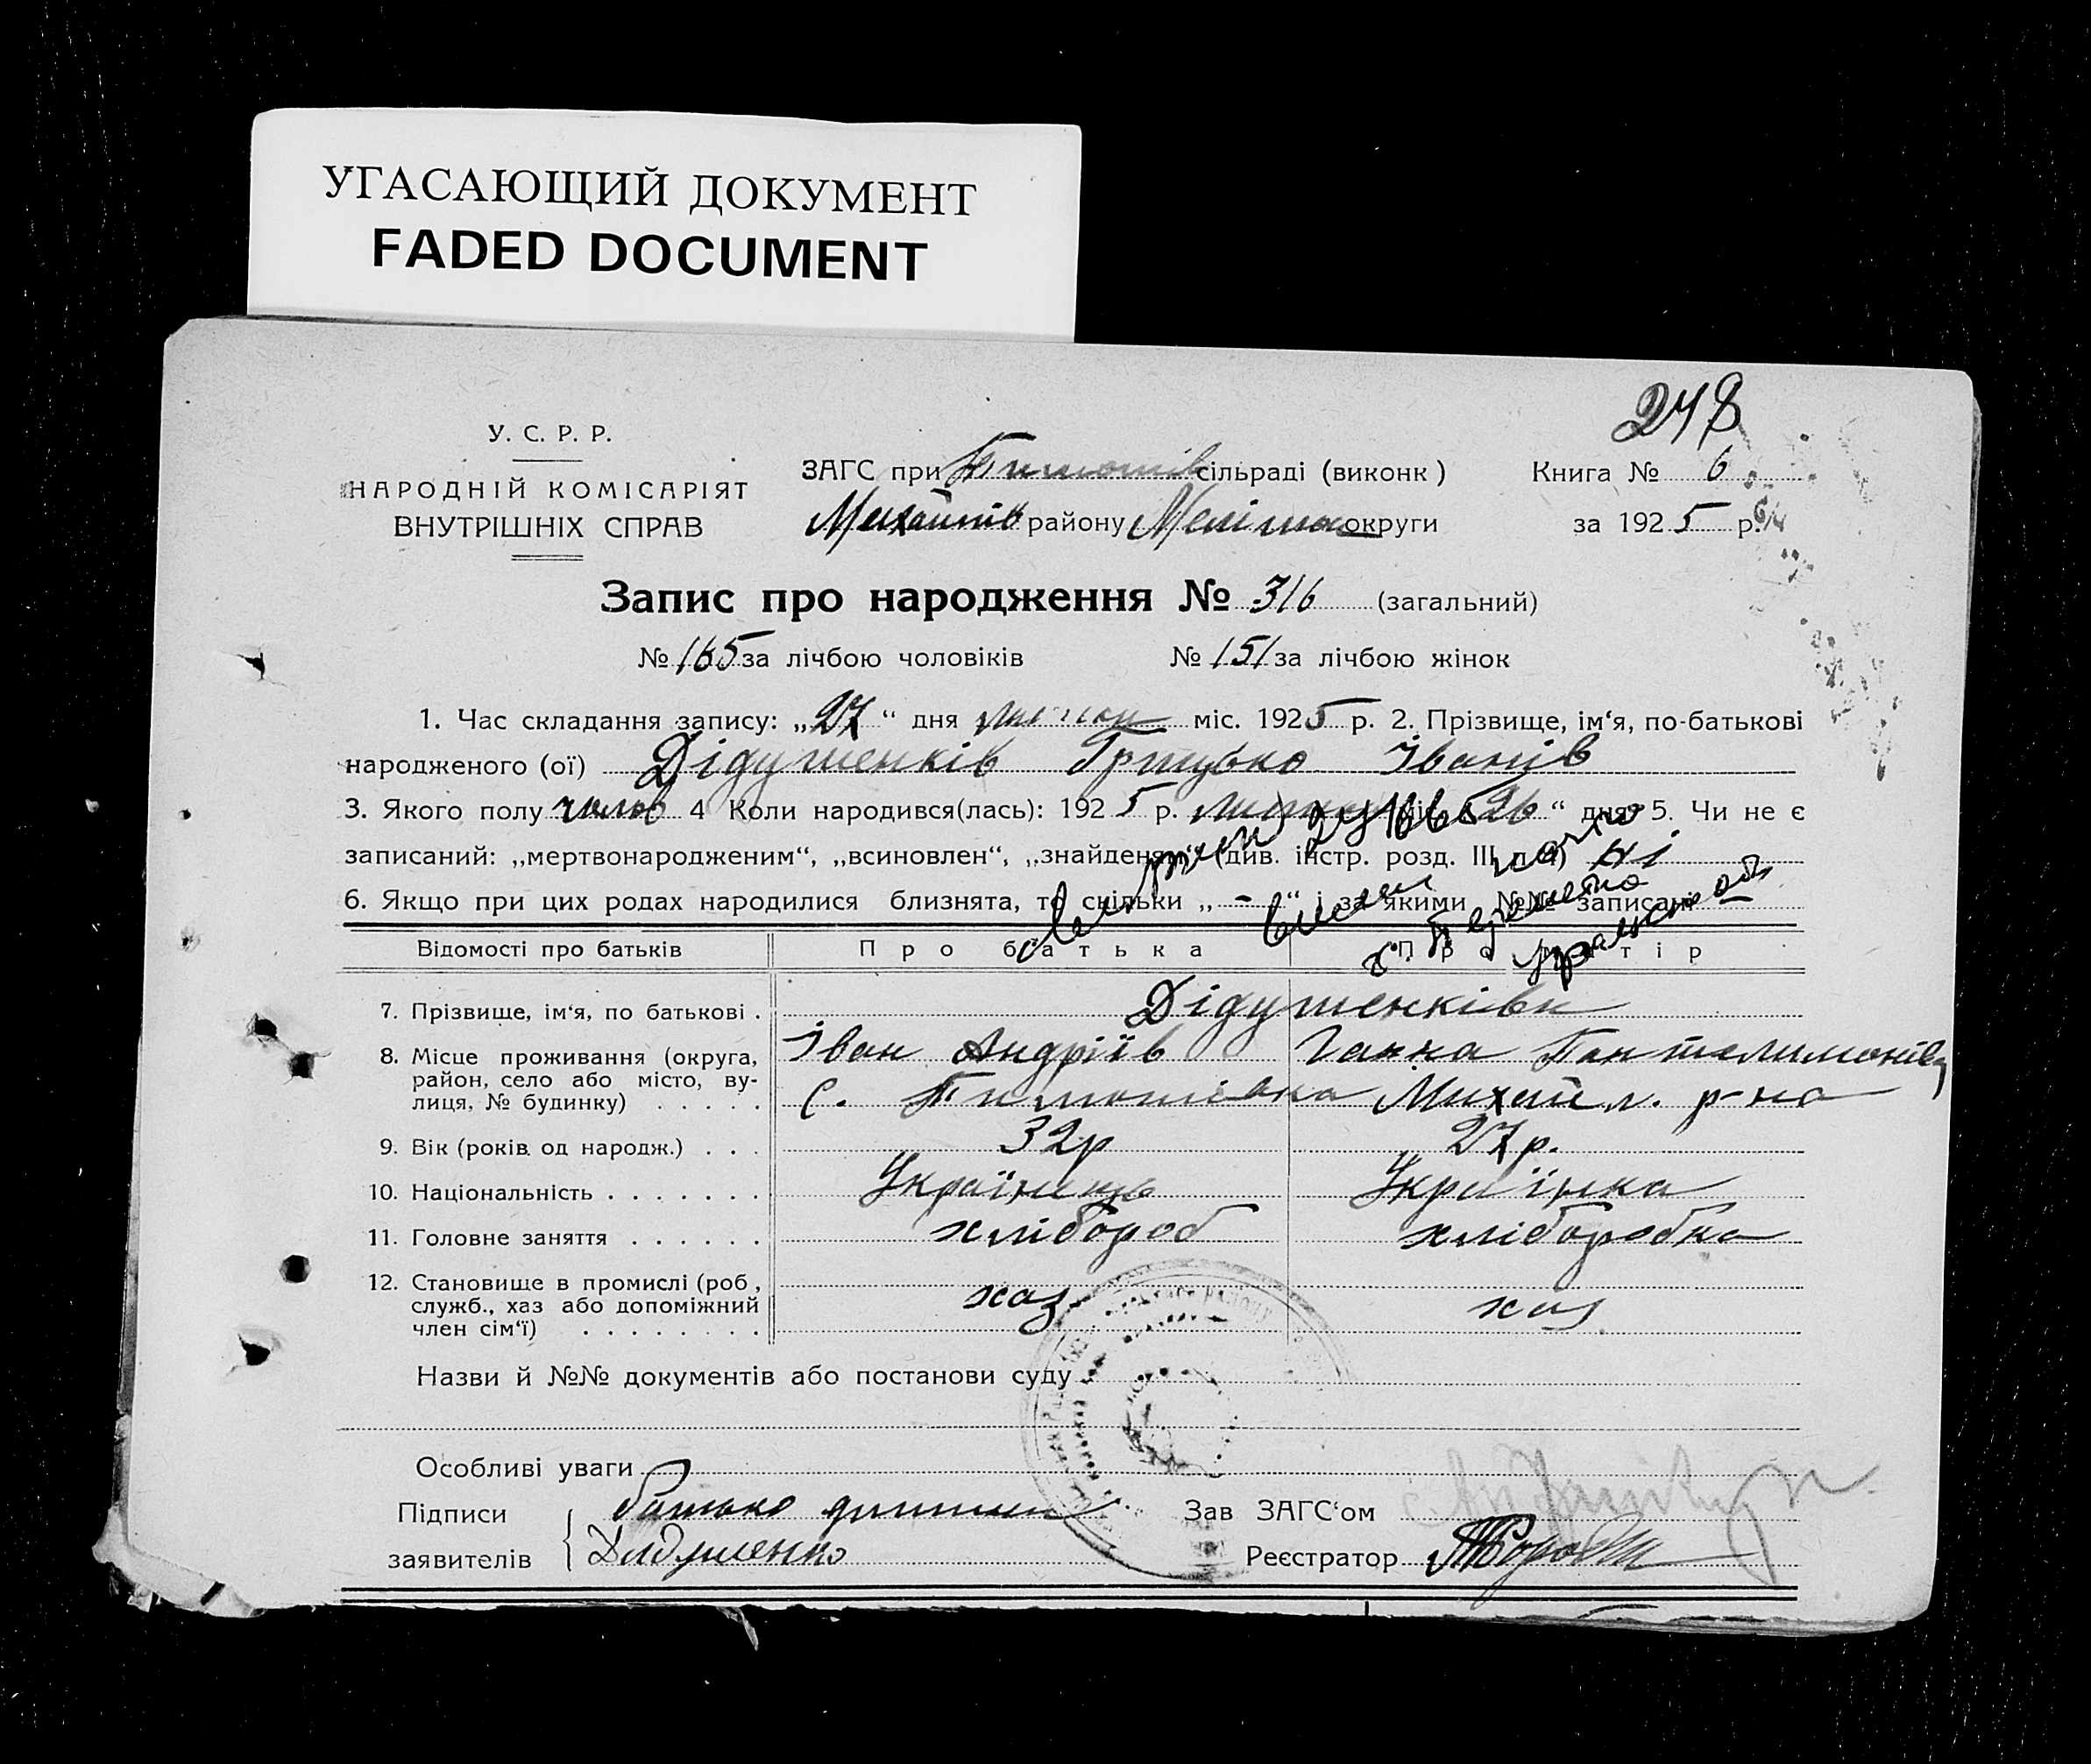 УГАСАЮЩИЙ ДОКУМЕНТ
FADED DOCUMENT
248
У. С. Р. Р.
НАРОДНІЙ КОМІСАРІЯТ
ВНУТРІШНІХ СПРАВ
ЗАГС при Тимошів сільраді (виконк)
Михайлів району Меліто округи
Книга № 6
за 1925 р.
Запис про народження № 316 (загальний)
№ 165 за лічбою чоловіків № 151 за лічбою жінок
1. Час складання запису: „27“ дня міс. 1925 р. 2. Прізвище, ім‘я, по-батькові
народженого (ої) Дідушенків Грицько Іванів
3. Якого полу чолов 4 Коли народився(лась): 1925 р. 26“ дня 5. Чи не є
записаний: „мертвонародженим“, „всиновлен“, „знайденям“ (див. інстр. розд. III п. 4) ні
6. Якщо при цих родах народилися близнята, то скільки „ - “ і за якими №№ записані –
Відомості про батьків Про батька Про матір
7. Прізвище, ім‘я, по батькові . Дідушенківи
Іван Андріїв Ганна Пантелимонівна
8. Місце проживання (округа, район, село або місто, ву-
лиця, № будинку) . . . . . с. Тимошівка Михайл. р-на
9. Вік (років од народж.) . . . 32р 27р.
10. Національність . . . . . . . Українець Українка
11. Головне заняття . . . . . . хлібороб хліборобка
12. Становище в промислі (роб, служб., хаз або допоміжний
член сім‘ї) . . . . . . . . хаз. хаз
Назви й №№ документів або постанови суду
Особливі уваги
Підписи заявителів { батько дитини
Дидушенко
Зав ЗАГС‘ом
Реєстратор